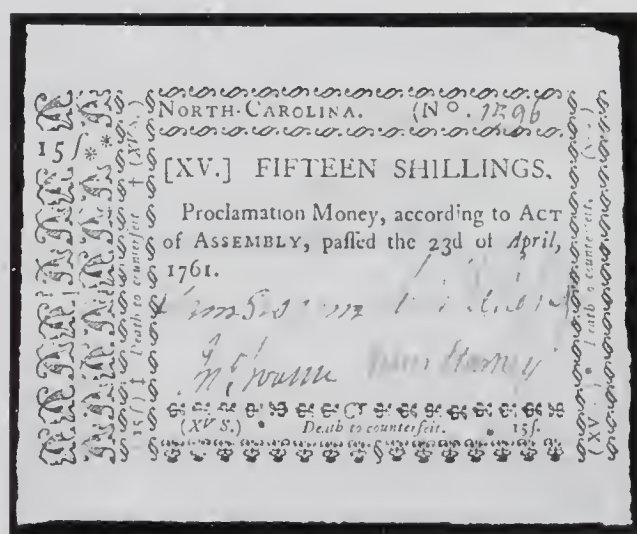 NORTH-CAROLINA. (No. 1296
15ſ
[XV.] FIFTEEN SHILLINGS.
Proclamation Money, according to ACT
of ASSEMBLY, paſſed the 23d of April,
1761.
Jn Swann
(XV S.) Death to counterfeit. 15ſ.
(15ſ) ‡ Death to counterfeit † (XV S.)
(XV Death to counterfeit.